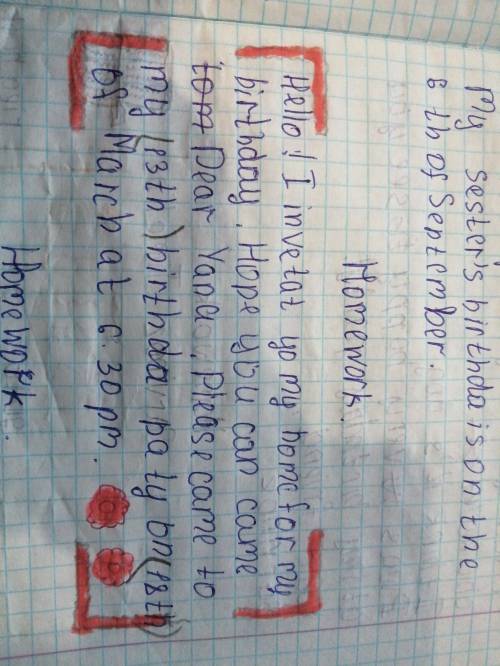 My sester's birthda is on the
8 th of September.
Homework.
Hello! I invetat yo my home for my
birthday. Hope you can came
tom Dear Yana, Please came to
my (13th) birthda pa ty bn (18th)
of March at 6.30 pm.
Homework.